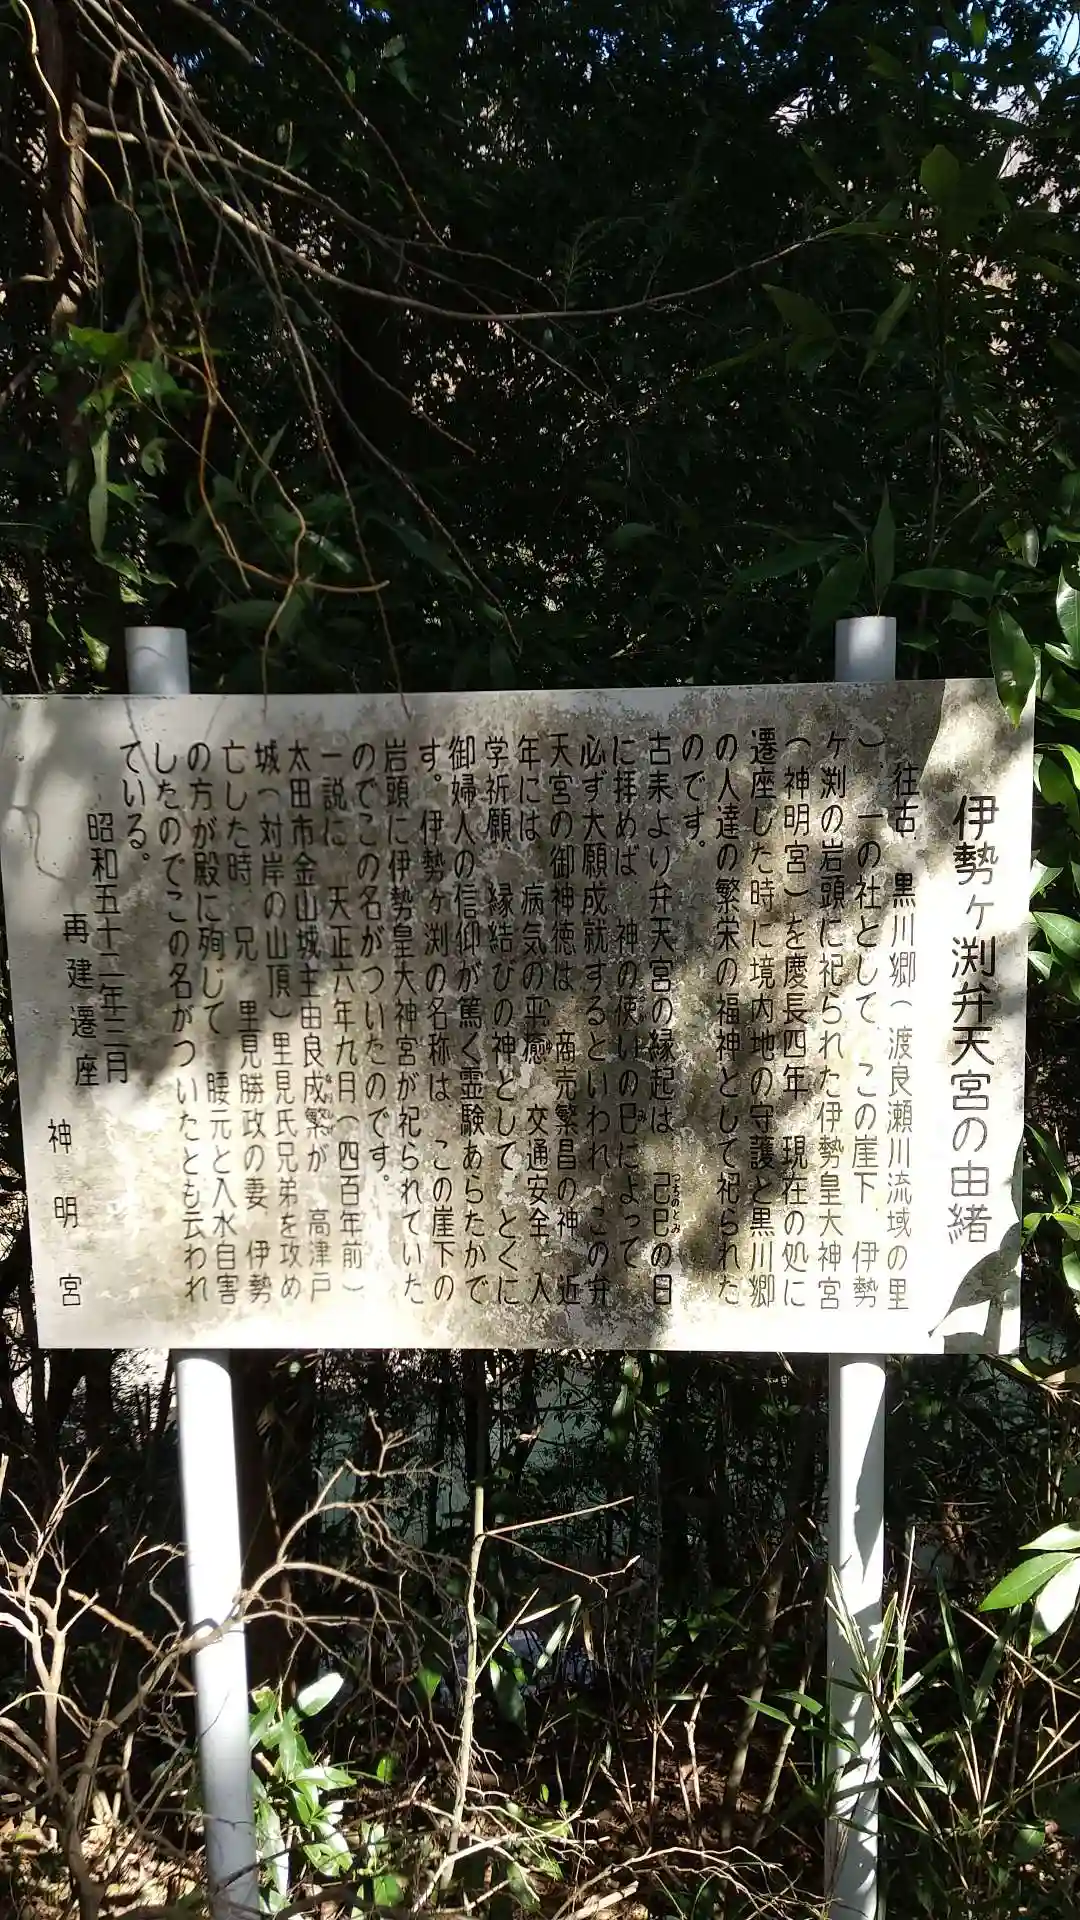 伊勢ヶ渕弁天宮の由緒
往古、黒川郷(渡良瀬川流域の里
)、一の社として、この崖下 伊勢
ヶ渕の岩頭に祀られた伊勢皇大神宮
(神明宮)を慶長四年 現在の処に
遷座した時に境内地の守護と黒川郷
の人達の繁栄の福神として祀られた
のです。
古来より弁天宮の縁起は 己巳の日
つちのとみ
に拝めば、神の使いの巳によって
み
必ず大願成就するといわれ この弁
天宮の御神徳は 商売繁昌の神 近
年には 病気の平癒 交通安全 入
ゆ
学祈願 縁結びの神として、とくに
御婦人の信仰が篤く霊験あらたかで
す。伊勢ヶ渕の名称は この崖下の
岩頭に伊勢皇大神宮が祀られていた
のでこの名がついたのです。
一説に 天正六年九月(四百年前)
太田市金山城主由良成繁が 高津戸
城(対岸の山頂)里見氏兄弟を攻め
亡した時 兄 里見勝政の妻 伊勢
の方が殿に殉じて 腰元と入水自害
したのでこの名がついたとも云われ
ている。
昭和五十二年三月
再建遷座
神明宮